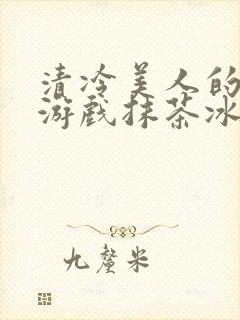 清冷美人的
游戏抹茶冰
九釐米